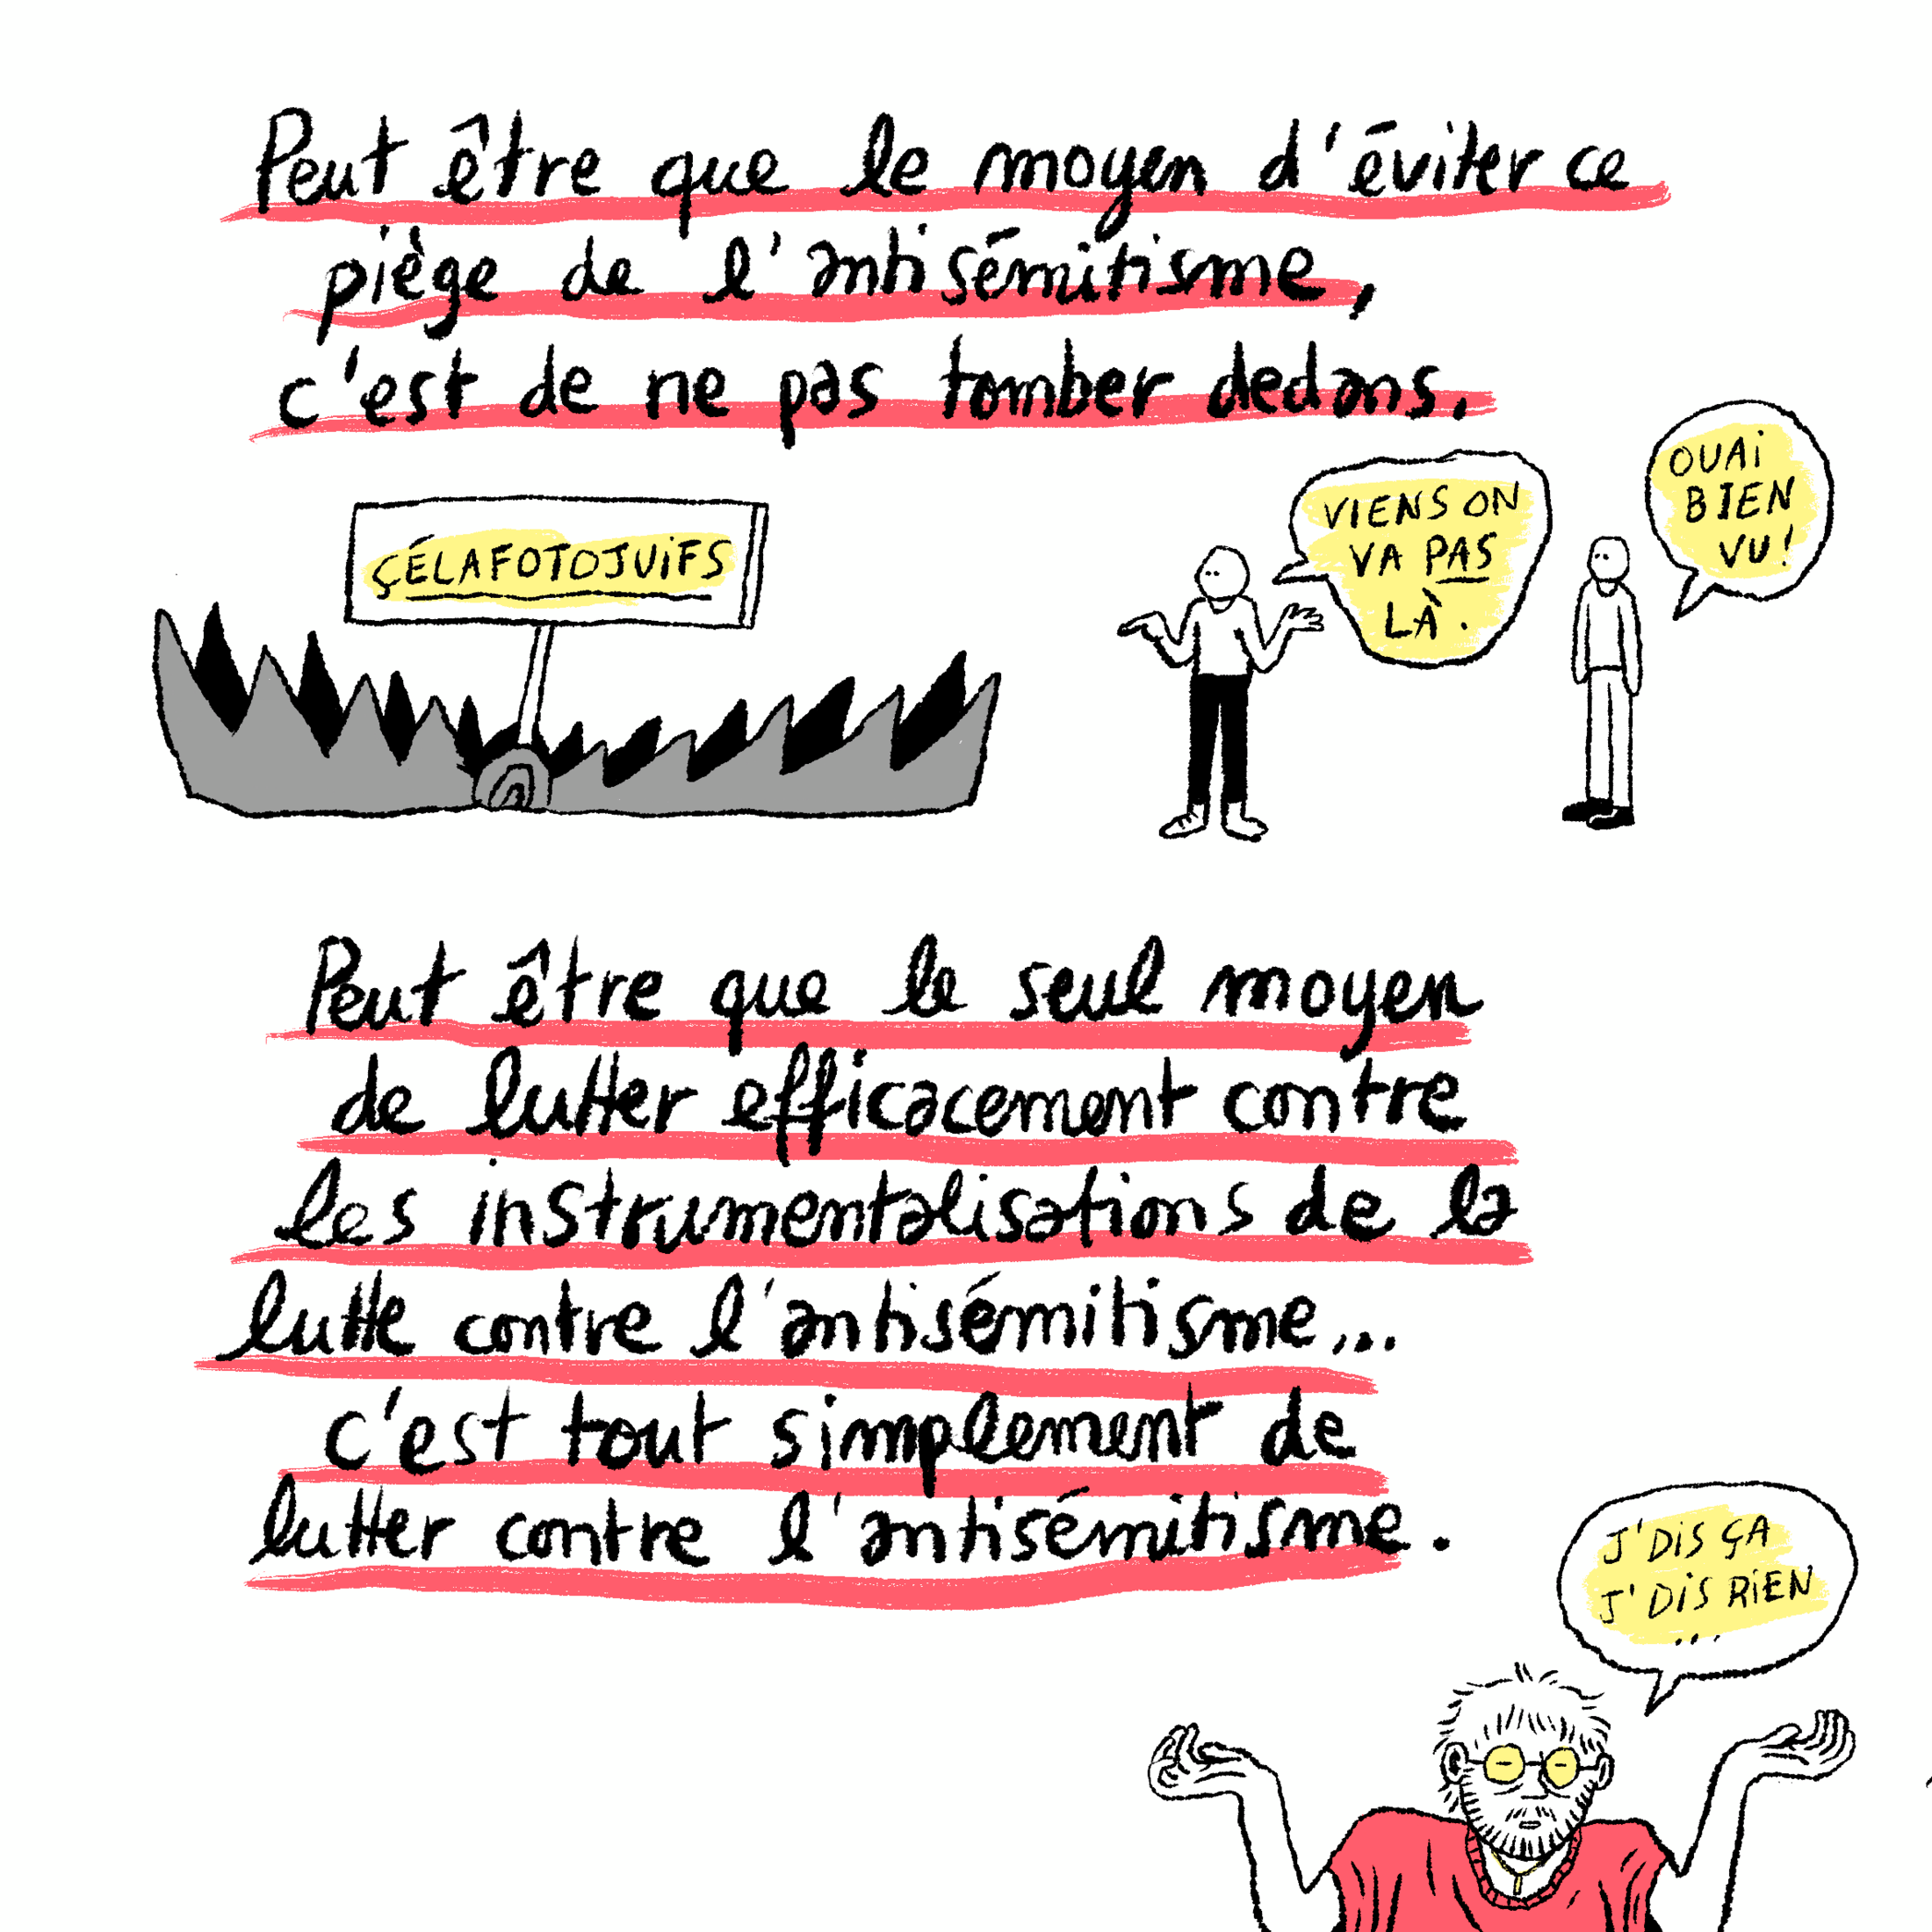 Peut être que le moyen d'éviter ce
piège de l'antisémitisme,
c'est de ne pas tomber dedans.
ÇÉLAFOTOJUiFS
VIENS ON
VA PAS
LÀ.
OUAi
BIEN
VU!
Peut être que le seul moyen
de lutter efficacement contre
les instrumentalisations de la
lutte contre l'antisémitisme...
c'est tout simplement de
lutter contre l'antisémitisme.
J'DiS ÇA
J'DiS RiEN
...